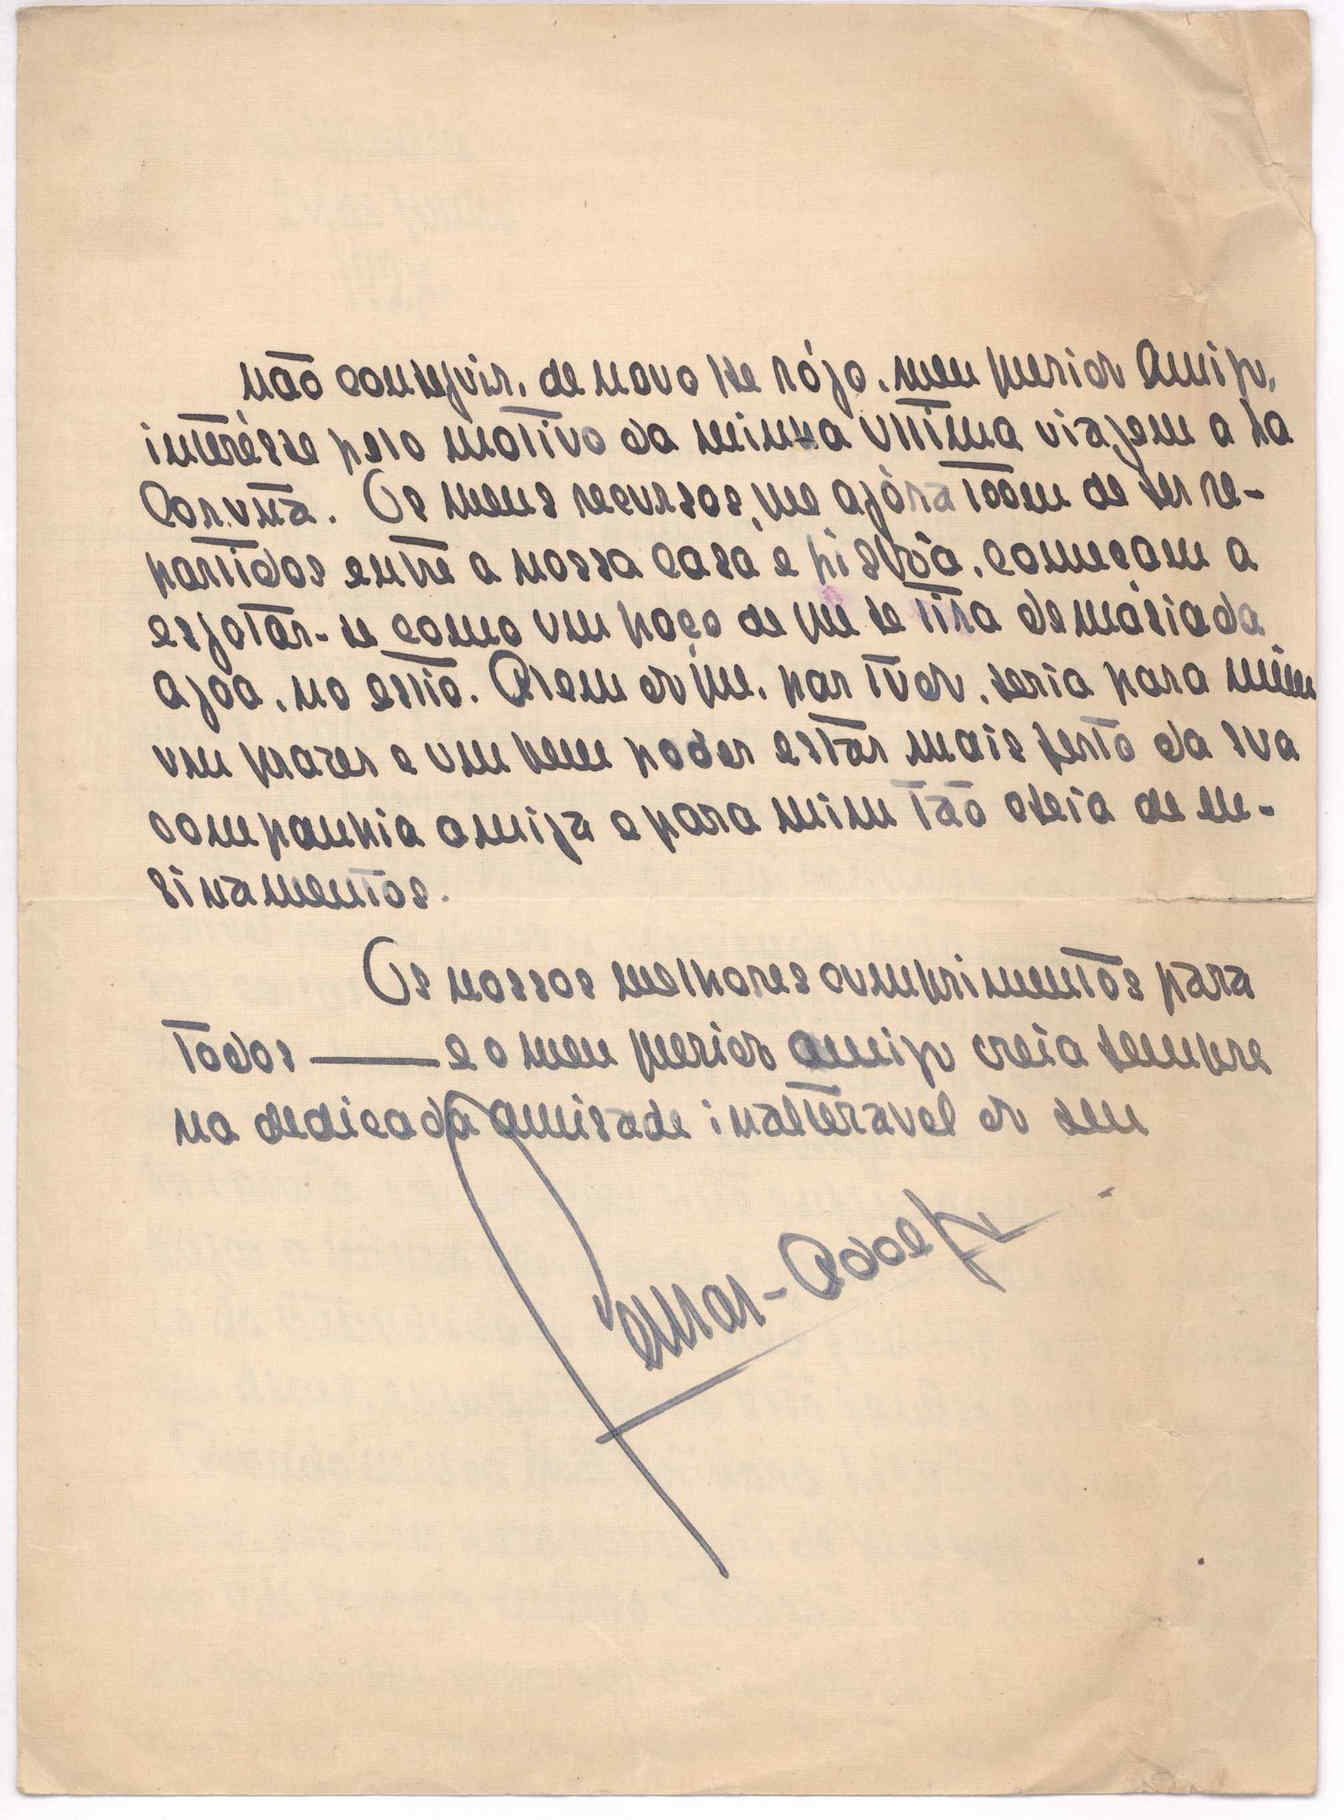 não conseguir, de novo lhe rógo, meu querido Amigo,
interêsse pelo motivo da minha ultima viagem a La
Coruña. Os meus recursos, que agóra tem de ser re-
partidos entre a nossa casa e Lisbôa, começam a
esgotar-se como um poço de que se tira demásiada
agoa, no estio. Alem do que, par tudo, seria para mim
um prazer e um bem poder estar mais perto da sua
companhia amiga e para mim tão cheia de en-
sinamentos.
Os nossos melhores cumprimentos para
todos — e o meu querido amigo creia sempre
na dedicada amisade inalteravel do seu